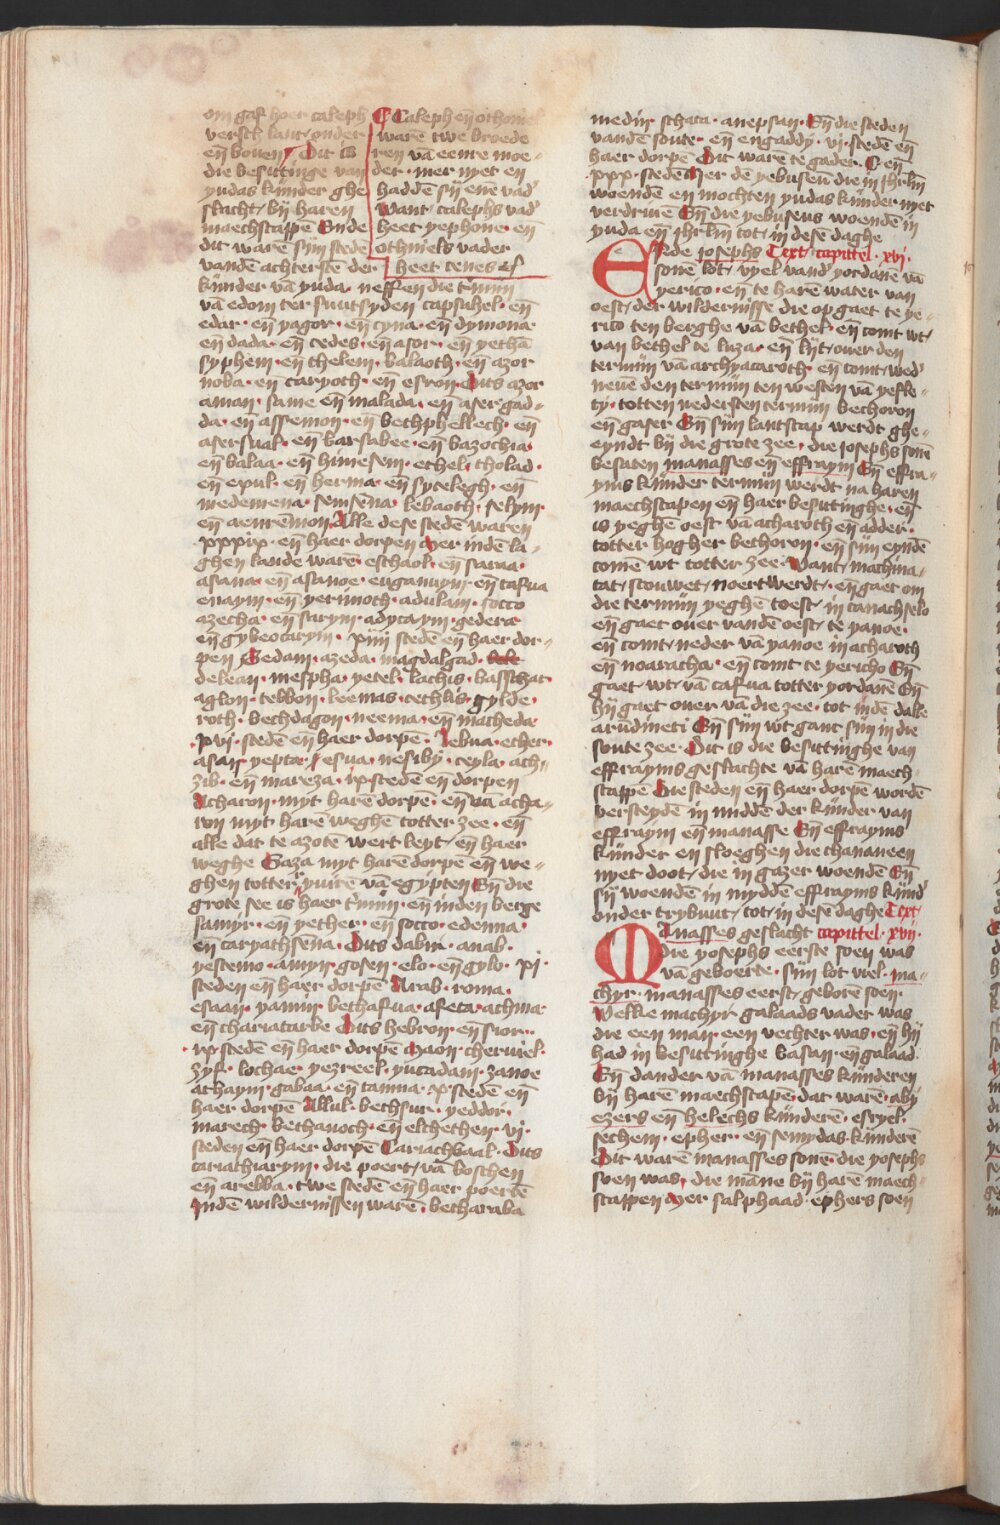 om gaf hoer caleph
versch lant onder
en̄ bouen Dit is
die besittinge van
yudas kijnder ghe
slacht bij haren
maechscappē Ende
dit warē sijn stedē
¶ Caleph en̄ othoniel
warē twe broede
ren vā eenre moe-
der mer nyet en
haddē sij enē vad'
Want calephs vad'
heet yephone en̄
othniels vader
heet cenes
vandē achterstē der
kijnder vā yuda neffen die t'mijn
vā edom ter suutsyden capsuhel en̄
edar en̄ yagor en̄ cyna en̄ dymona
en̄ dada en̄ cedes en̄ asor en̄ yethā
syphem en̄ thelem balaoth en̄ azor
noba en̄ caryoth en̄ esron Dits azor
aman same en̄ malada en̄ aser gad-
da en̄ assemon en̄ bethphellech en̄
asersual en̄ barsabee en̄ bazochia
en̄ balaa en̄ himesem ethel tholad
en̄ epul en̄ herma en̄ sycelegh en̄
medemena semsēna lebaoth selym
en̄ aenremon Alle dese stedē waren
xxxix en̄ haer dorpen Mer indē la-
ghen lande warē eschaol en̄ saraa
asana en̄ asanoe engannym en̄ tafua
enaym en̄ yerimoth adulam socco
azecha en̄ sarym adytaym gedera
en̄ gybeotarym xiiij stedē en̄ haer dor-
pen Sedam azeda magdalgad
delean mespha yetel lachis basschat
aglon tebbon leemas cethlis gylde
roth bechdagon neema en̄ matheda
xvi stedē en̄ haer dorpē Lebua ether
asan yepta esua nesibi ceyla ach-
zib en̄ mareza ix stedē en̄ dorpen
Acharon myt harē dorpē en̄ vā acha-
ron myt harē weghē totter zee en̄
alle dat te azotē wert leyt en̄ haer
weghe Gaza myt harē dorpē en̄ we-
ghen totter yuirē vā egypten En̄ die
grote see is haer t'mijn en̄ inden berge
samyr en̄ yether en̄ socco edenna
en̄ caryathsēna Dits dabir anab
yestemo amyn gosen elo en̄ gylo xi
steden en̄ haer dorpē Arab roma
esaan yanim bethafua afeca achma
en̄ chariatarbe Dits hebron en̄ sior
ix stedē en̄ haer dorpē Maon chermel
zyf lochae yezreel yucadam zanoe
achaym gabaa en̄ tamna x stedē en̄
haer dorpē Allul bechsur yeddor
marech bethanoth en̄ elthethen vi
steden en̄ haer dorpē Cariachbaal Dits
cariathiarym die poert vā boschen
en̄ arebba twe stedē en̄ haer poertē
Indē wildernissen warē betharaba
medijn schata anepsan En̄ die steden
vandē soute en̄ engaddy vi stedē en̄
haer dorpē Dit warē te gader C en̄
xxx stedē Mer dē yebuseū die in ih'rlm̄
woendē en mochten yudas kijnder nyet
verdriuē En̄ die yebuseus woendē in
yuda en̄ ih'rlm̄ tot in desē daghe
ENde iosephs Text capittel xvi
sonē lot vyel vand' yordanē vā
yerico en̄ te harē water van
oest der wildernisse die op gaet te ye-
rico ten berghe vā bethel en̄ comt wt
van bethel te luza en̄ lijt ouer den
termijn vā archyataroth en̄ comt wed'
neuē den termijn ten westen vā yefle-
ty totten nedersten termijn bechoron
en̄ gaser En̄ sijn lantscap werdt ghe-
eyndt bij die grote zee die iosephs sonē
besaten manasses en̄ effraym En̄ effra-
yms kijnder termijn werdt na haren
maechstapen en̄ haer besittinghe en̄
is yeghē oest vā acharoth en̄ adder
totter hogher bethoron en̄ sijn eyndē
comē wt totter zee Want machma-
tat scouwet noertwerdt en̄ gaet om
die termijn yeghē toest in tanachselo
en̄ gaet ouer vandē oest te yanoe
en̄ comt neder vā yanoe in acharoth
en̄ noaratha en̄ comt te yericho En̄
gaet wt vā tafua totter yordanē En̄
hij gaet ouer vā die zee tot in dē dalle
arudineti En̄ sijn wt ganc sijn in die
soute zee Dit is die besittinghe van
effrayms geslachte vā harē maech-
stappē Die steden en̄ haer dorpē wordē
versceydē in middē der kijnder van
effraym en̄ manasse En̄ effrayms
kijnder en sloeghen die chananeen
nyet doot die in gazer woendē En̄
sij woendē in myddē effrayms kijnd'
onder trybuut tot in desē daghe Text
MAnasses geslacht capittel xvij
die yosephs eerste soen was
vā geboerte sijn lot viel ma-
chyr manasses eerst geborē soen
Welke machyr galaads vader was
die een man een vechter was en̄ hij
had in besittinghe basan en̄ galaad
En̄ dander vā manasses kijnderen
bij harē maechstapē dat warē aby
ezers en̄ helechs kijnderē esryel
sechem epher en̄ semydas kijnderē
Dit warē manasses sonē die yosephs
soen was die māne bij harē maech-
stappen Mer salphaad ephers soen